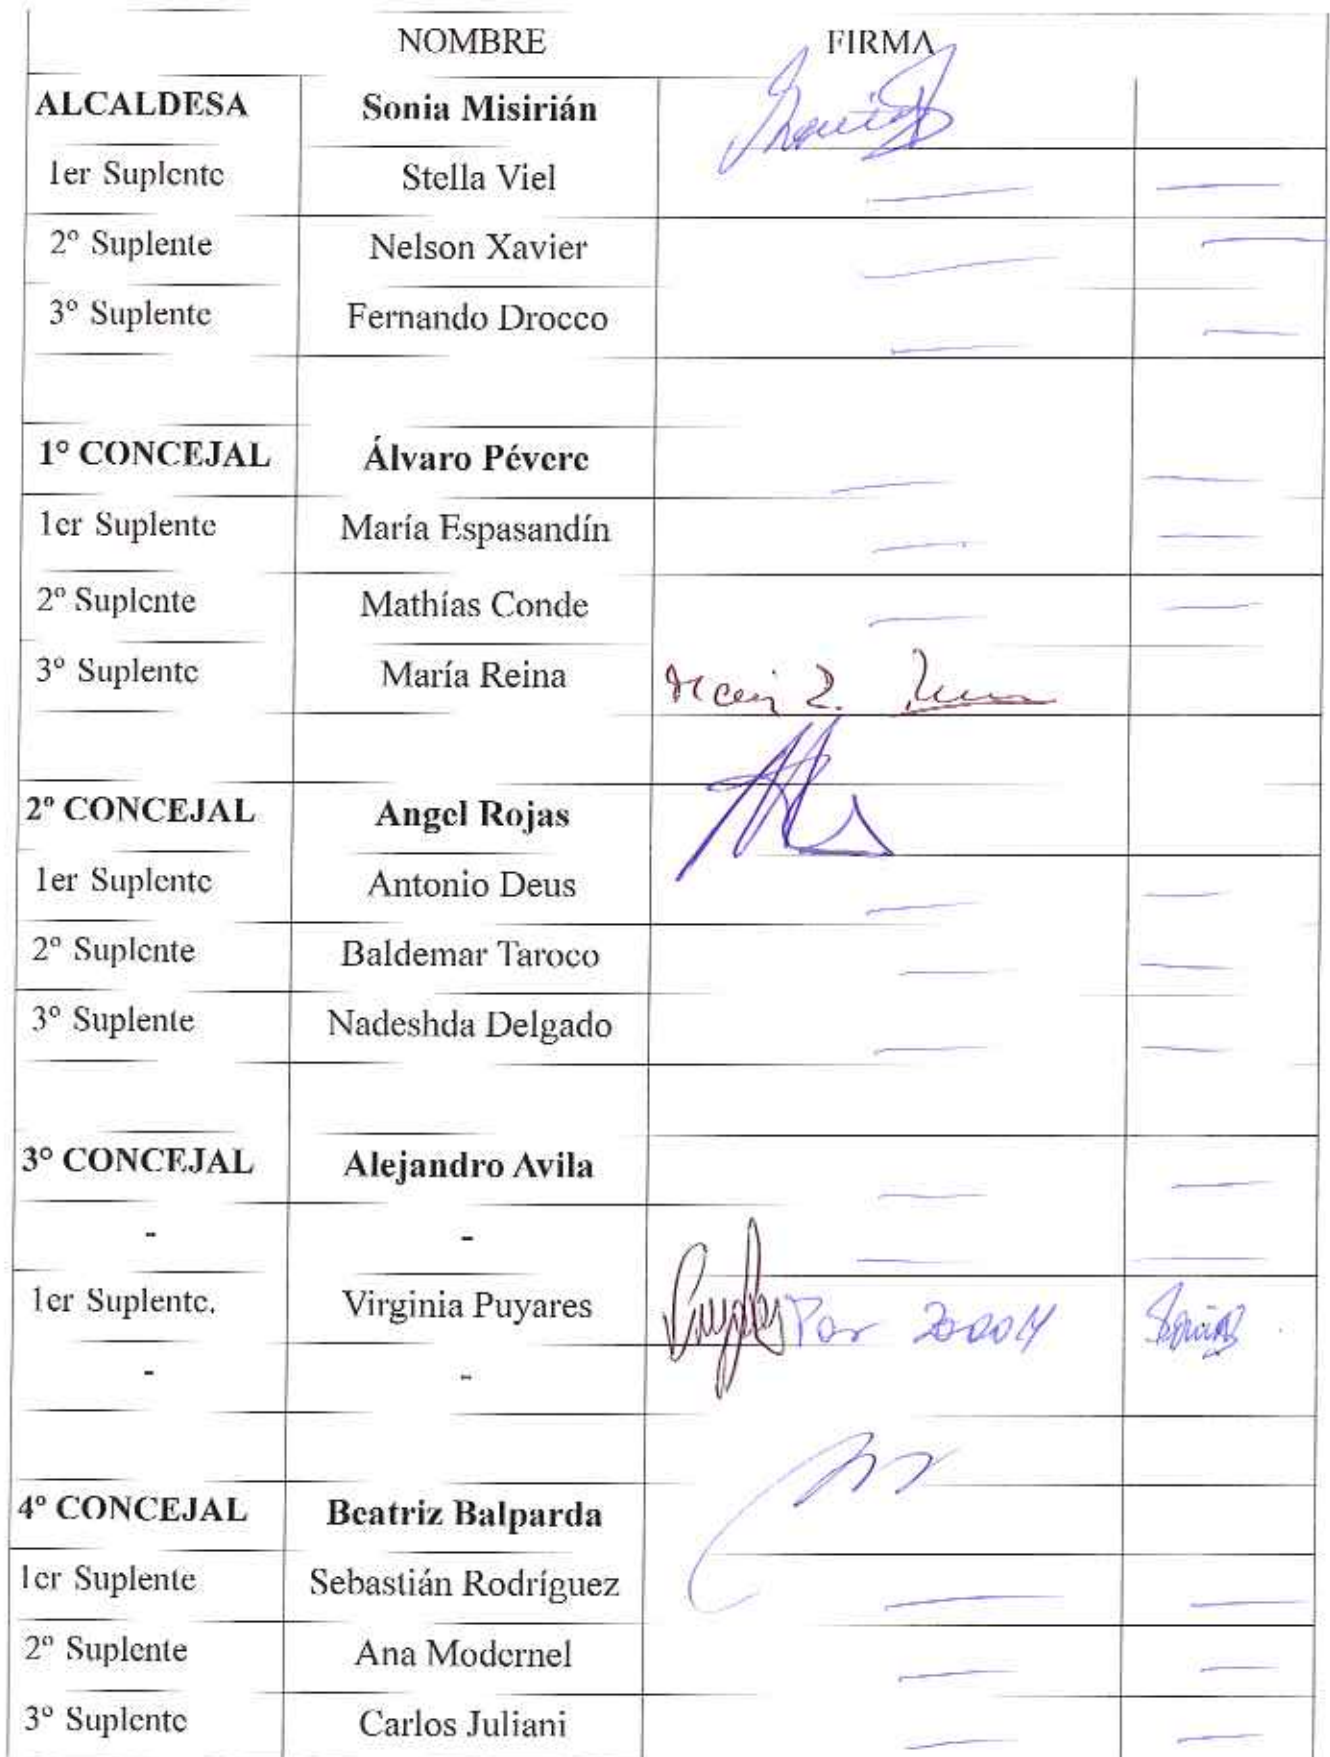 NOMBRE FIRMA
ALCALDESA Sonia Misirián
1er Suplente Stella Viel
2º Suplente Nelson Xavier
3º Suplente Fernando Drocco
1º CONCEJAL Álvaro Pévere
1er Suplente María Espasandín
2º Suplente Mathías Conde
3º Suplente María Reina
2º CONCEJAL Angel Rojas
1er Suplente Antonio Deus
2º Suplente Baldemar Taroco
3º Suplente Nadeshda Delgado
3º CONCEJAL Alejandro Avila
- -
1er Suplente. Virginia Puyares Por
- -
4º CONCEJAL Beatriz Balparda
1er Suplente Sebastián Rodríguez
2º Suplente Ana Modernel
3º Suplente Carlos Juliani